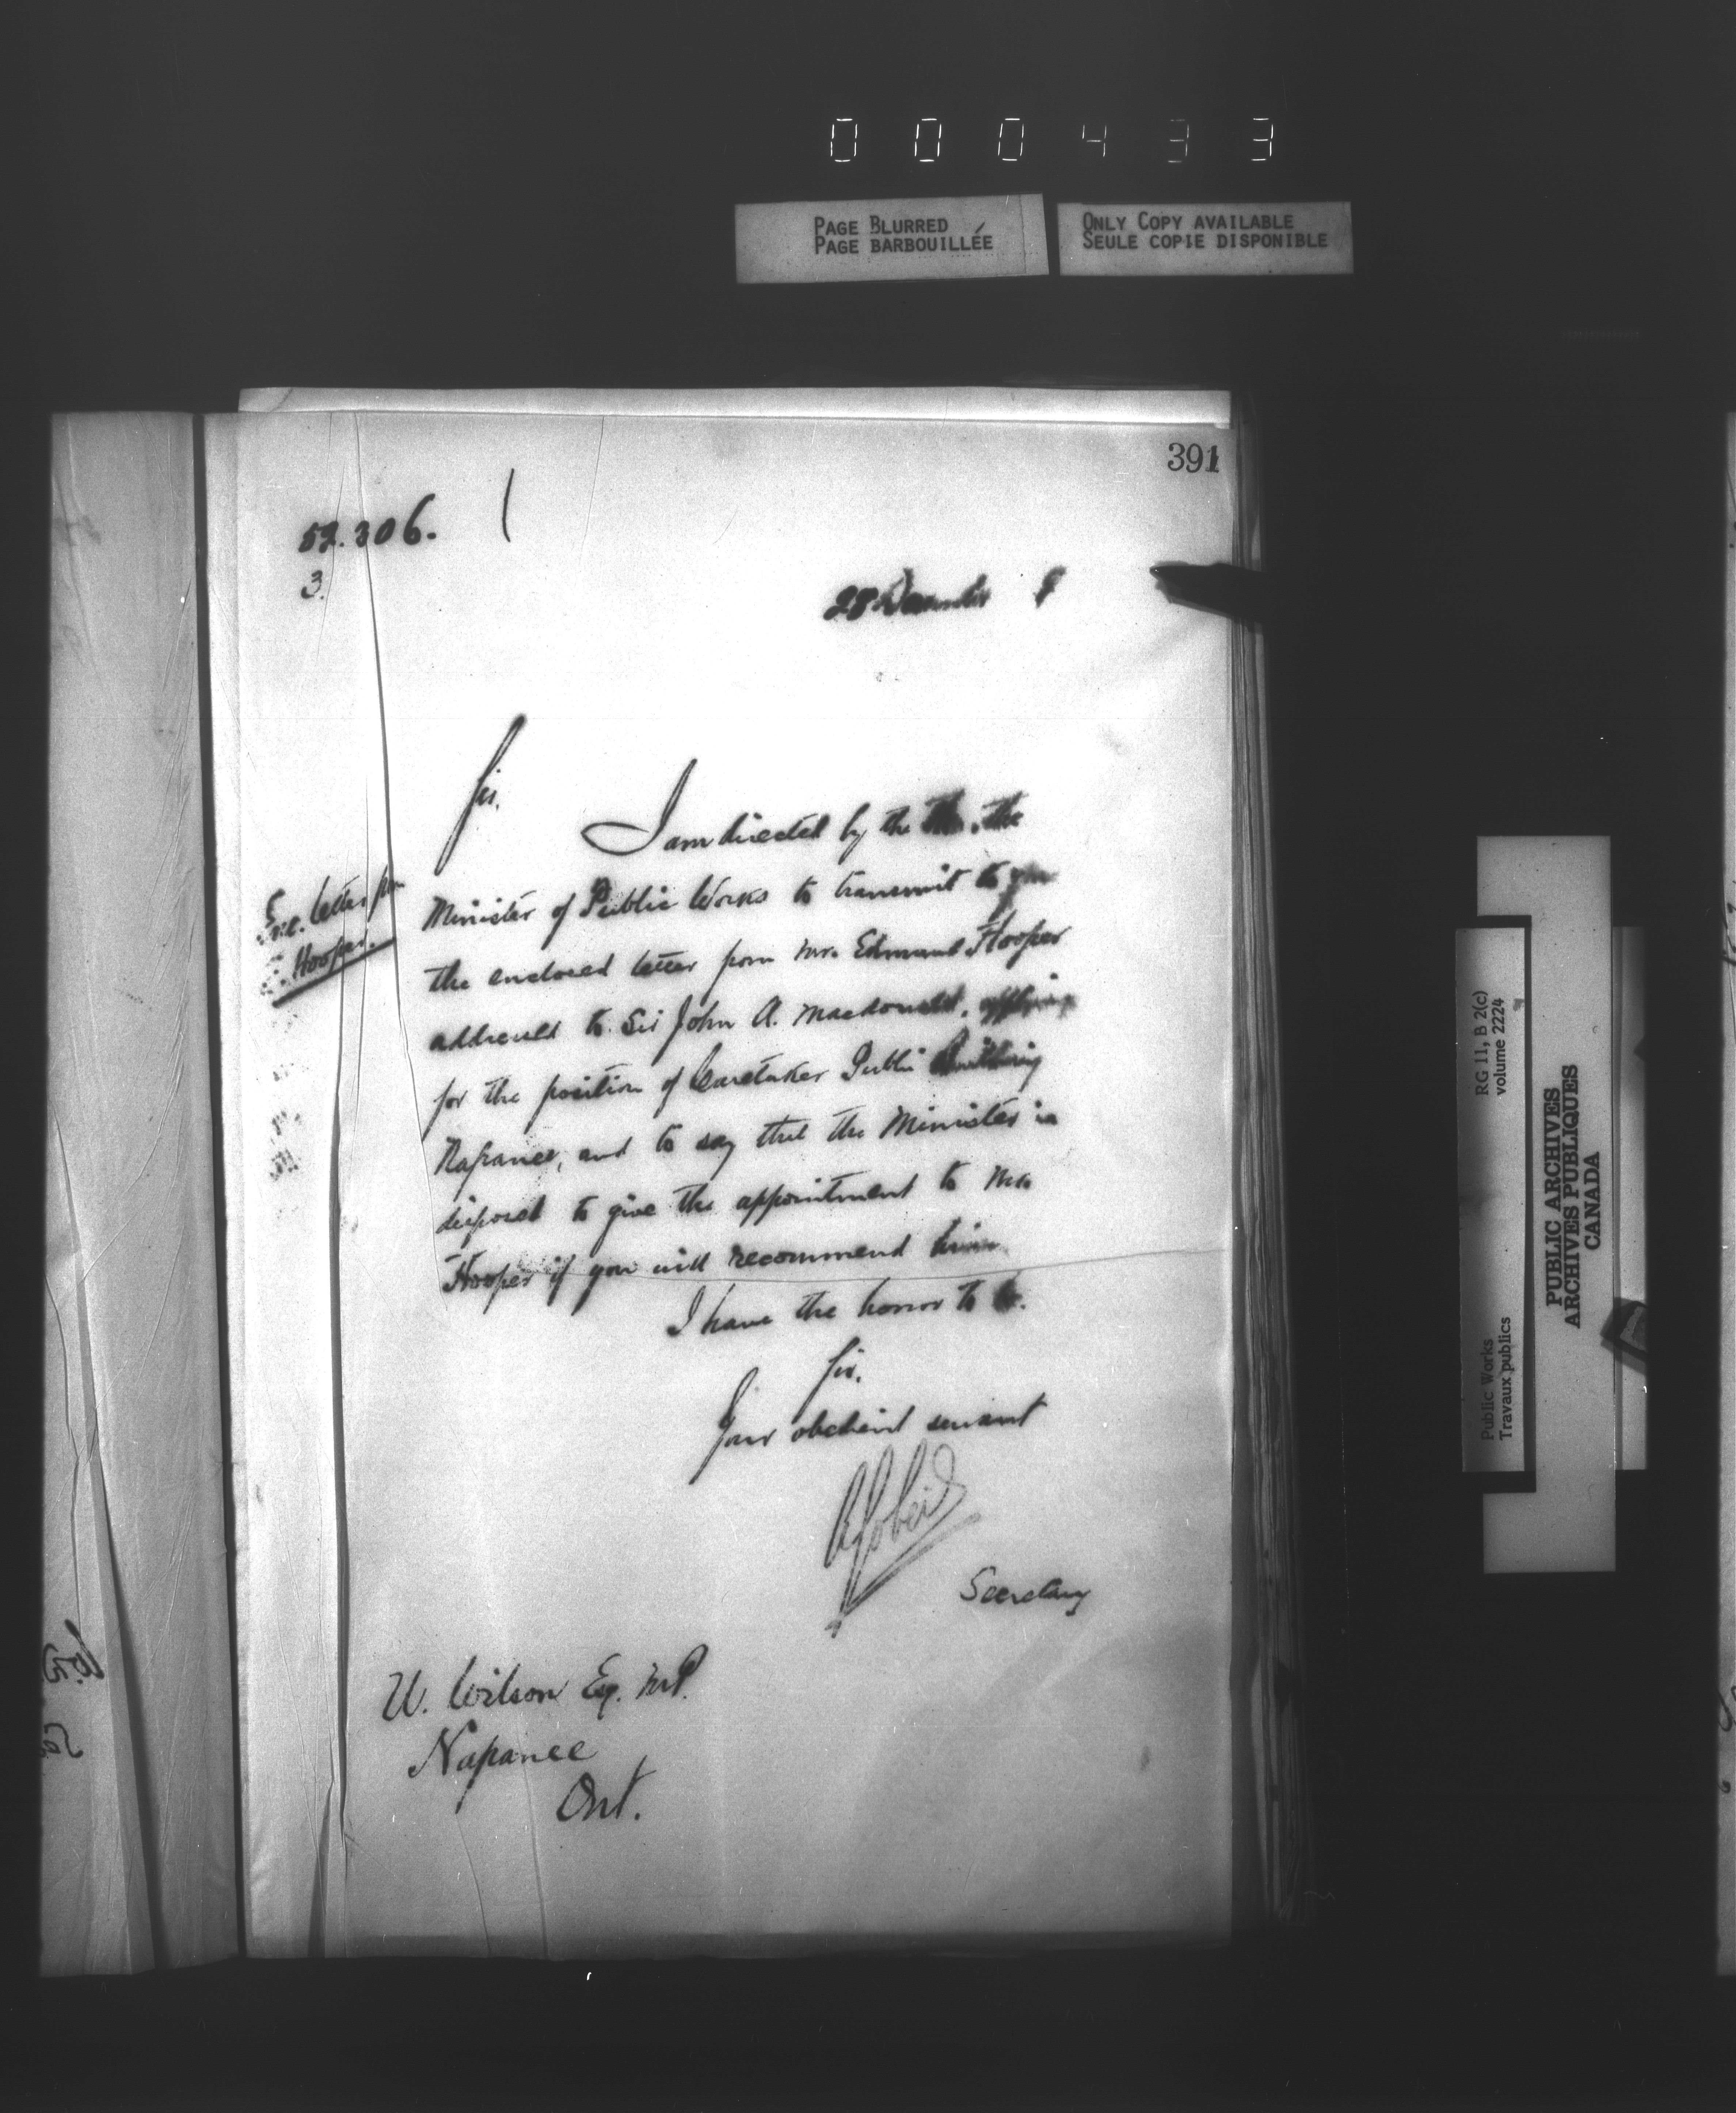 000433
PAGE BLURRED
PAGE BARBOUILLÉE
ONLY COPY AVAILABLE
SEULE COPIE DISPONIBLE
391
52.306.
3.
28 December
Sir,
I am directed by the Hon. the
Minister of Public Works to transmit to you
the enclosed letter from Mr. Edmund Hooper
addressed to Sir John A. Macdonald, applying
for the position of Caretaker Public Building
Napanee, and to say that the Minister is
disposed to give the appointment to Mr.
Hooper if you will recommend him
I have the honor to be.
Sir.
Your obedient servant
Secretary
U. Wilson Esq. M.P.
Napanee
Ont.
Enc. letter from
Hooper.
RG 11, B 2(c)
volume 2224
Public Works
Travaux publics
PUBLIC ARCHIVES
ARCHIVES PUBLIQUES
CANADA